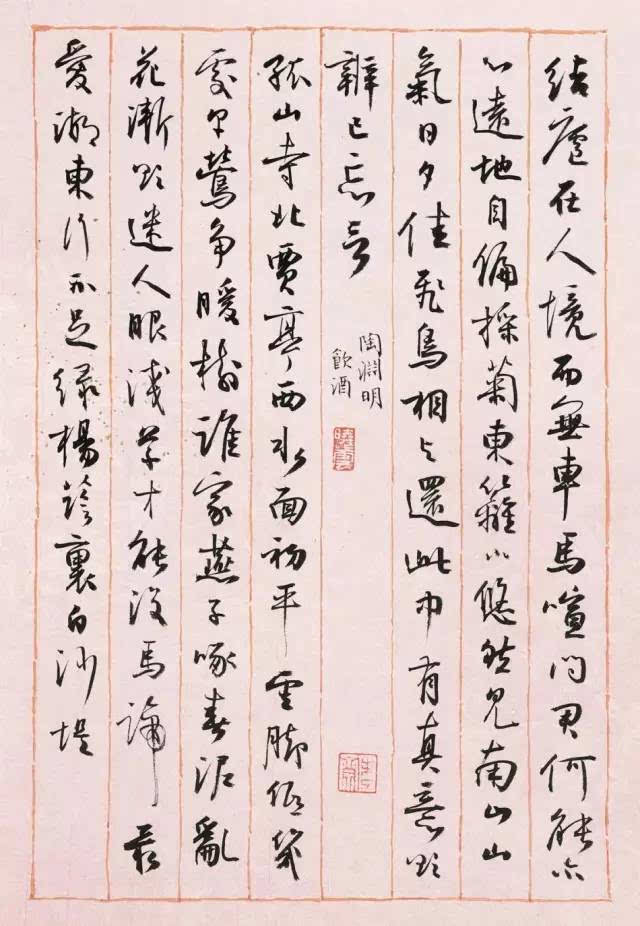 結廬在人境而無車馬喧問君何能尔
心遠地自偏採菊東籬下悠然見南山山
氣日夕佳飛鳥相与還此中有真意欲
辨已忘言
陶淵明
飲酒
孤山寺北賈亭西水面初平雲脚低幾
處早鶯争暖樹誰家燕子啄春泥亂
花漸欲迷人眼淺草才能没馬蹄最
愛湖東行不足緑楊蔭裏白沙堤